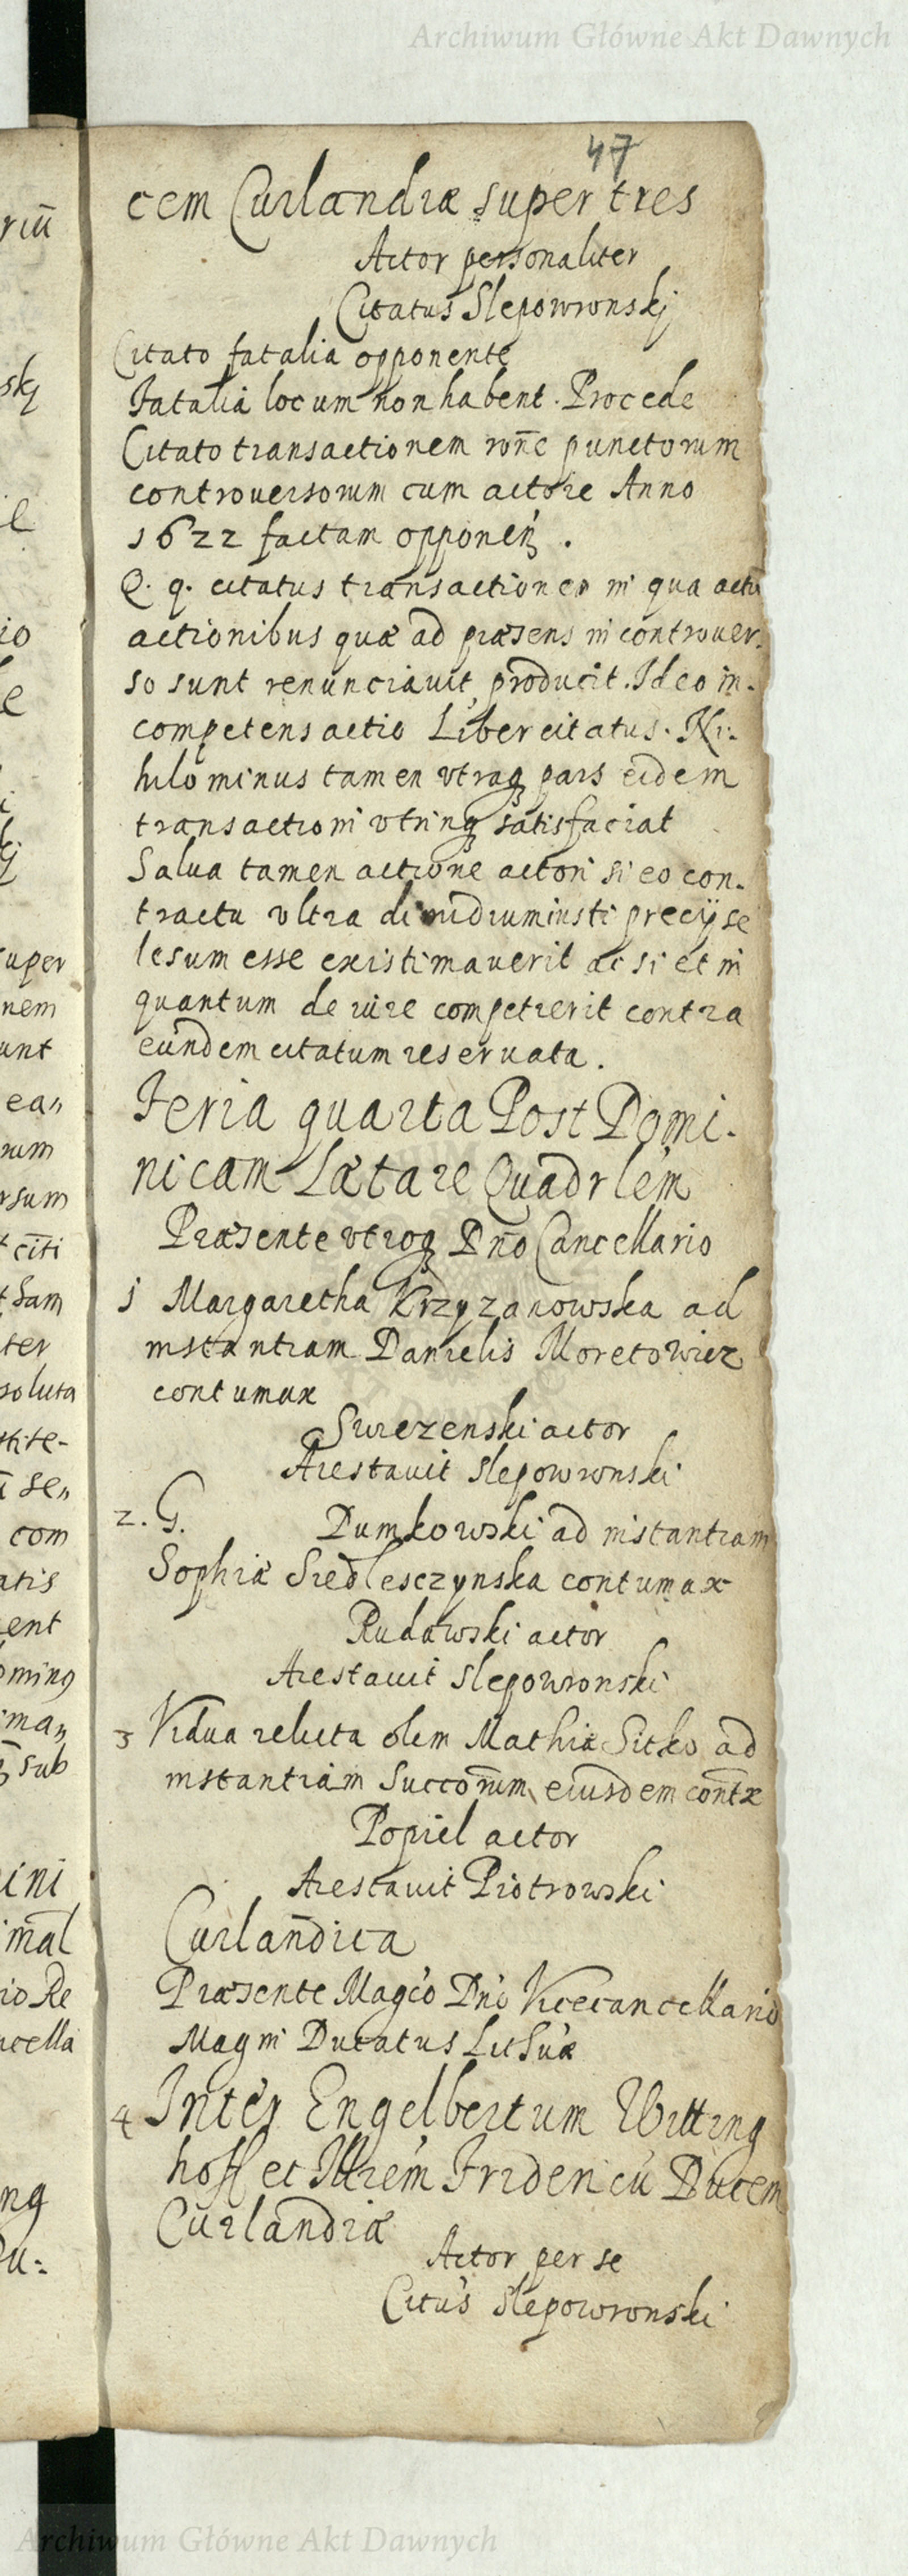 Archiwum Główne Akt Dawnych
47
cem Curlandiæ super tres
Actor personaliter
Citatus Slepowronskj
Citato fatalia opponente
Fatalia locum non habent. Procede
Citato transactionem rōne punctorum
controversorum cum actore Anno
1622 factam opponeñ.
Q. q. citatus transactionem in qua acto
actionibus quæ ad præsens in controver-
so sunt renunciavit producit. Ideo in-
competens actio Liber citatus. Ni-
hilominus tamen vtraq pars eidem
transactioni vtrinq satisfaciat
Salua tamen actione actori si eo con-
tractu vltra dimidium iusti precij se
lesum esse existimauerit ac si et in
quantum de iure competierit contra
eundem citatum reseruata.
Feria quarta Post Domi-
nicam Lætare Quadrlem
Præsente vtroq Dno Cancellario
1 Margaretha Krzyzanowska ad
instantiam Danielis Moretowicz
contumax
Swiezenski actor
Arestauit Slepowronski
2. G. Dumkowski ad instantiam
Sophiæ Siedlesczynska contumax
Rudawski actor
Arestauit Slepowronski
3 Vidua relicta olim Mathiæ Sitko ad
instantiam Succorum eiusdem contx
Popiel actor
Arestauit Piotrowski
Curlandica
Præsente Magco Dno Vicecancellario
Magni Ducatus Lithuæ
4 Inter Engelbertum Witting
hoff et Illrem Fridericū Ducem
Curlandiæ
Actor per se
Citus Slepowronski
riū
skj
io
super
nem
unt
ean
rum
rsum
citi
ter
soluta
com
ent
sub
ini
cella
ng
Archiwum Główne Akt Dawnych